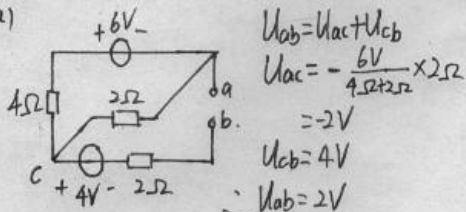 a)
+6V-
4Ω
2Ω
a
b.
C
+ 4V - 2Ω
Uab=Uac+Ucb
Uac=-6V/(4Ω+2Ω)×2Ω
=-2V
Ucb=4V
∴ Uab=2V